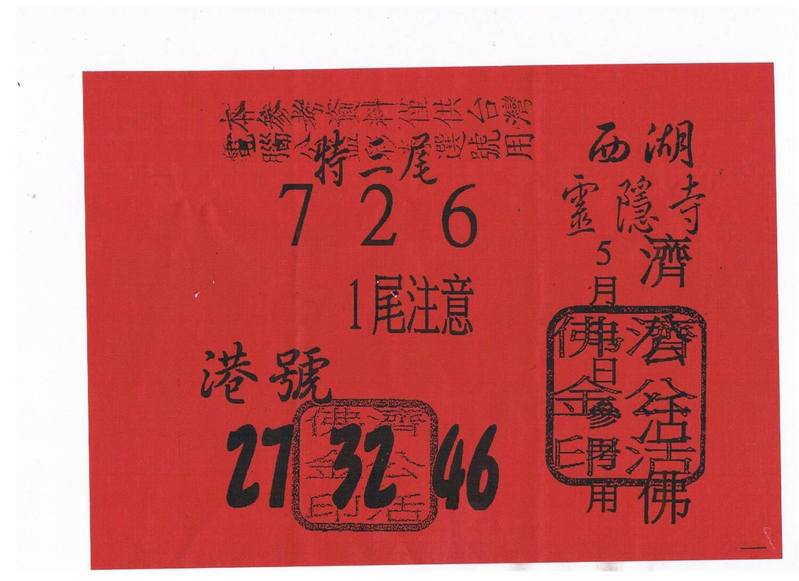 本參考資料僅供台灣
電腦公益彩券選號用
特三尾
7 2 6
1尾注意
港號
27 32 46
濟公活
佛金印
西湖
靈隱寺
濟公活佛
5月 日參考用
濟公活
佛金印